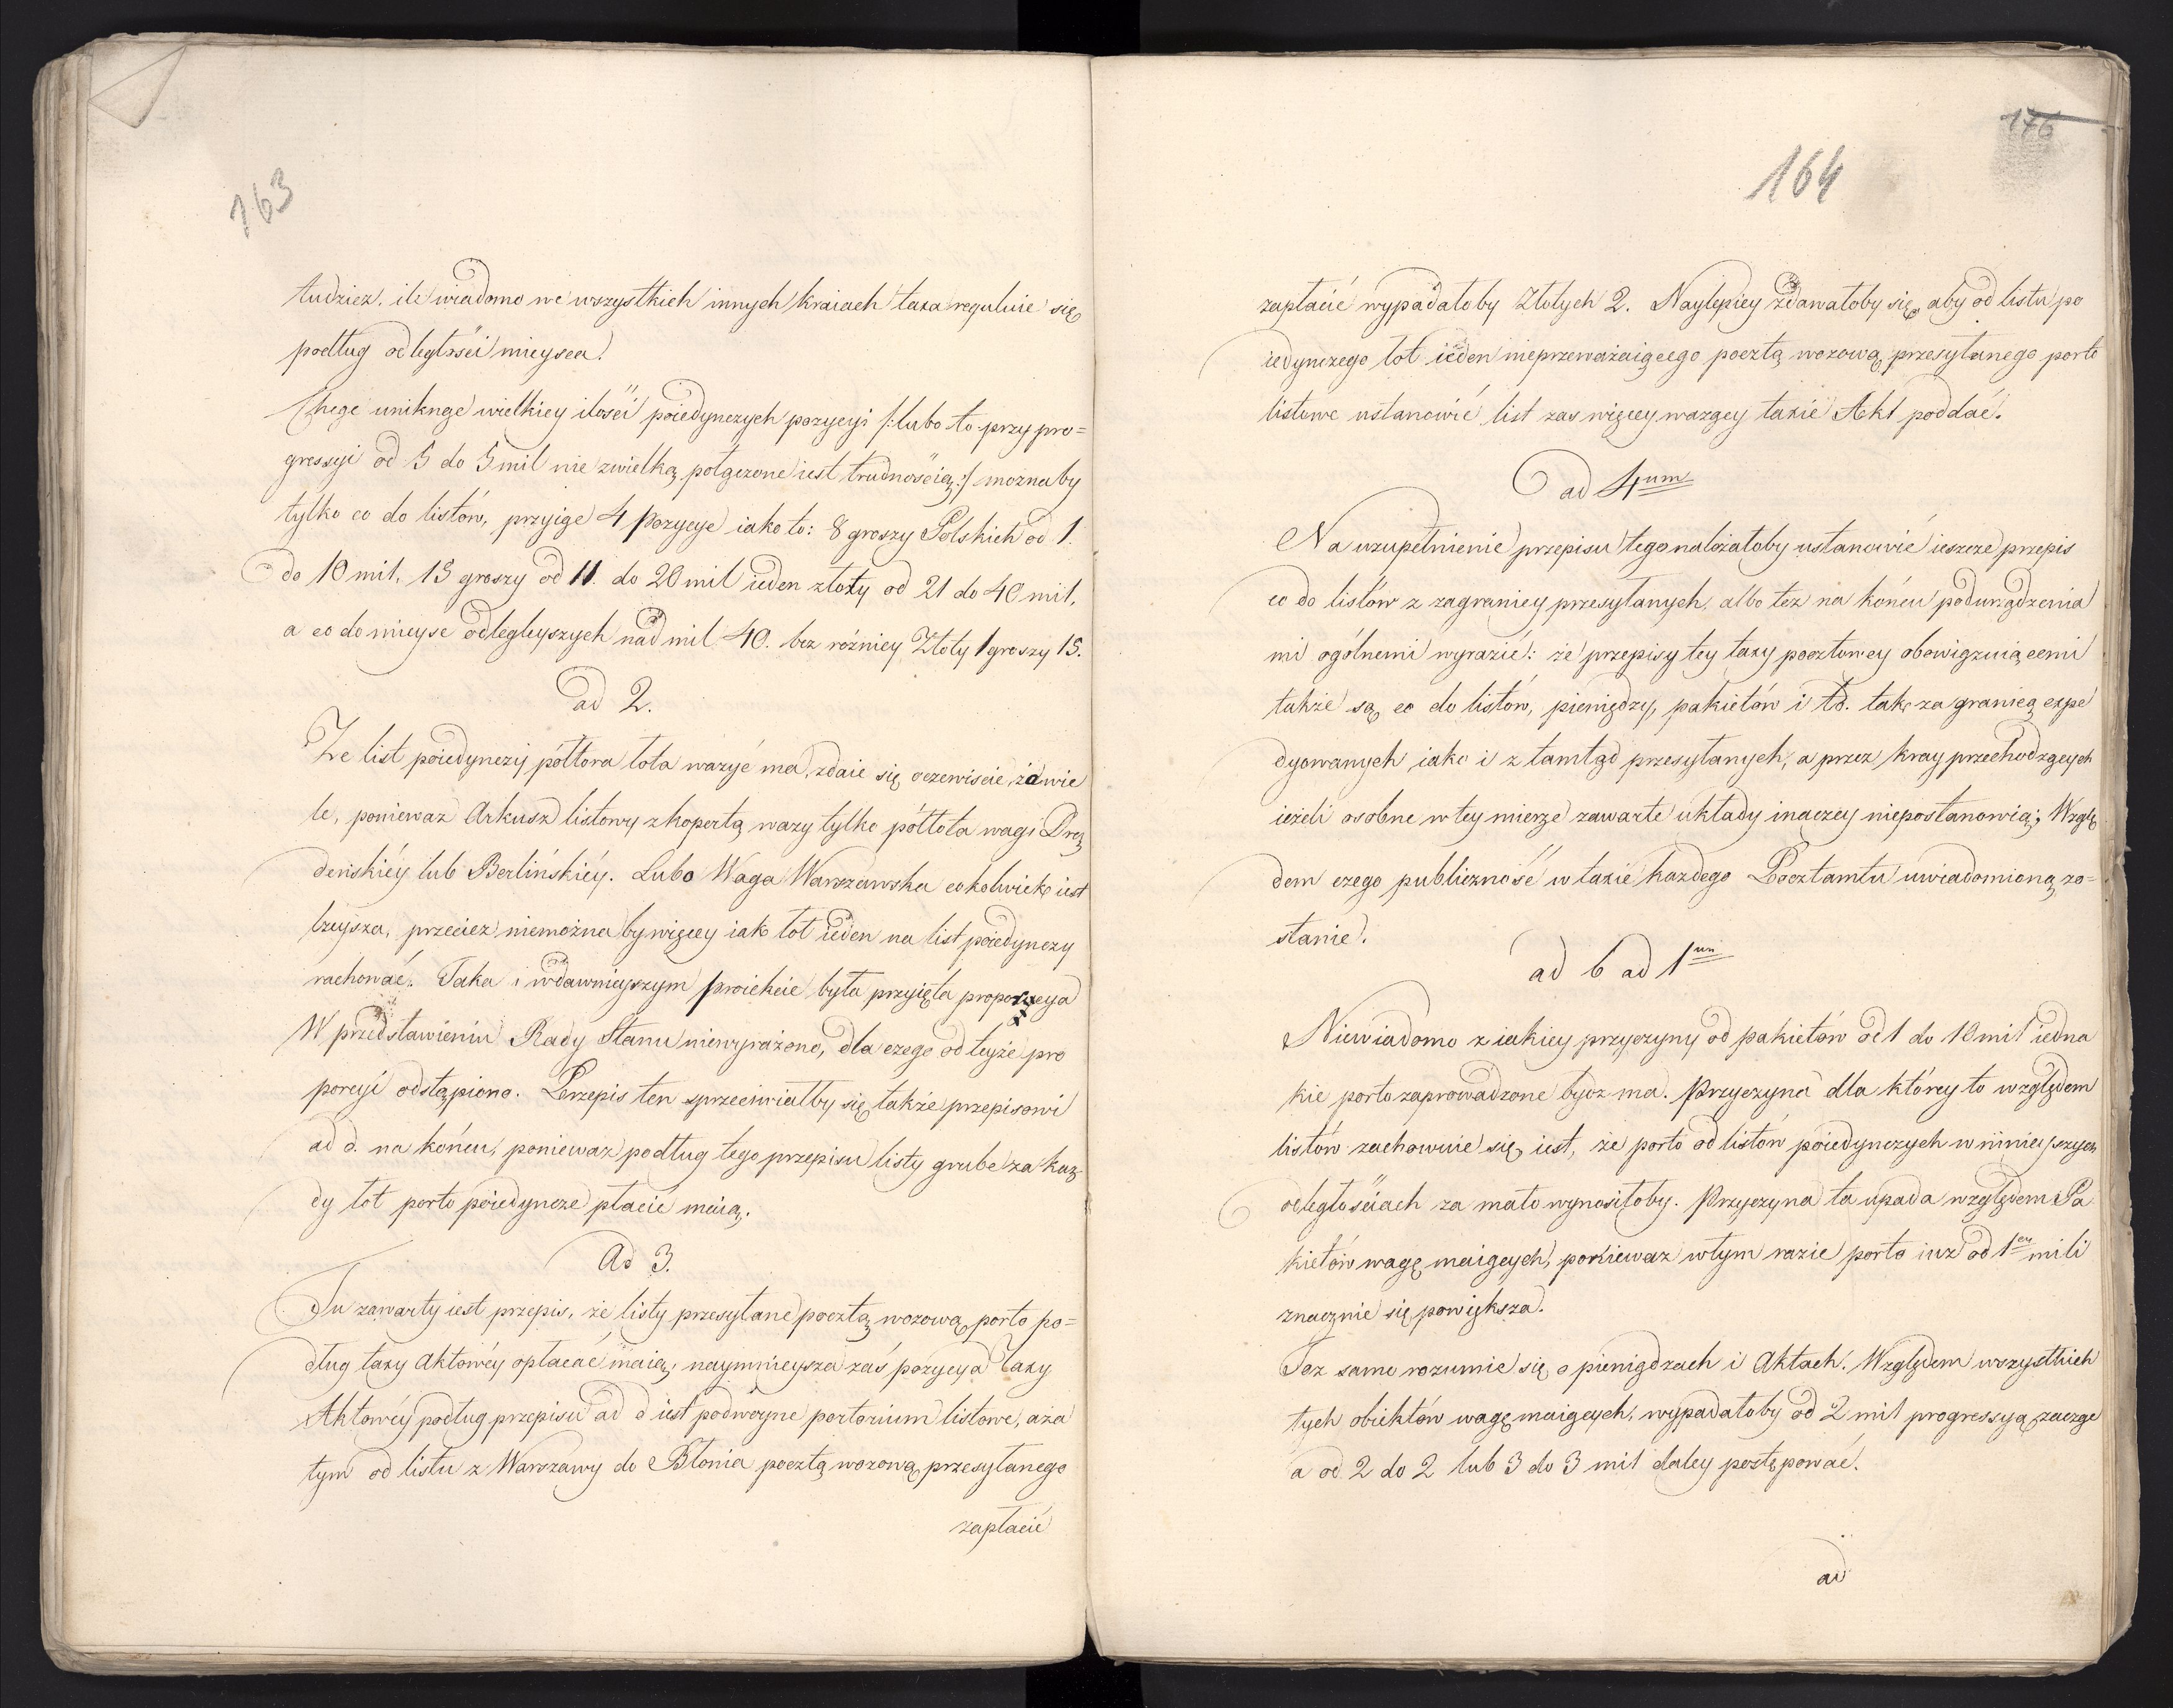 163
tudziez, ile wiadomo we wszystkich innych kraiach taxa reguluie się
podług odległości mieysca.
Chcąc uniknąc wielkiey ilości poiedynczych pozycyi /: lubo to przy pro=
gressyi od 5 do 5 mil nie zwielką połączone iest trudnością :/ moznaby
tylko co do listów, przyiąc 4 Pozycye iako to: 8 groszy Polskich od 1.
do 10 mil, 15 groszy od 11. do 20 mil ieden złoty od 21 do 40 mil,
a co do mieysc odległeyszych nad mil 40. bez rózniey Złoty 1 groszy 15.
ad 2.
Ze list poiedynczy półtora łota wazyć ma, zdaie się oczewiscie, za wie
le, poniewaz Arkusz listowy z kopertą wazy tylko półłota wagi Drez
deńskiéy lub Berlińskiéy. Lubo Waga Warszawska cokolwiek iest
lżeysza, przeciez niemożnaby więcey iak łot ieden na list poiedynczy
rachować. Taka i wdawnieyszym proiekcie była przyięta proporcya
W przedstawieniu Rady Stanu niewyrażono, dla czego od teyże pro
porcyi odstąpiono. Przepis ten sprzeciwiałby się także przepisowi
ad d. na końcu, poniewaz podług tego przepisu listy grube za kaz
dy łot porto poiedyncze płacić maią.
Ad 3.
Tu zawarty iest przepis, że listy przesyłane pocztą wozową porto po=
dług taxy Aktowéy opłacać maią, naymnieysza zaś pozycya Taxy
Aktowéy podług przepisu ad d iest podwoyne portorium listowe, a za
tym od listu z Warszawy do Błonia pocztą wozową przesyłanego
zapłacić
176
164
zapłacić wypadałoby Złotych 2. Naylepiey zdawałoby się, aby od listu po
iedynczego łot ieden nieprzeważaiącego pocztą wozową przesyłanego porto
listowe ustanowić list zas więcey wazący taxie Akt poddać.
ad 4um
Na uzupełnienie przepisu tego należałoby ustanowić ieszcze przepis
co do listów z zagranicy przesyłanych, albo tez na końcu pod urządzenia
mi ogólnemi wyrazić: że przepisy tey taxy pocztowey obowiązuiącemi
także są co do listów, pieniędzy, pakietów i td. tak za granicą expe
dyowanych iako i z tamtąd przesyłanych, a przez kray przechodzących
ieżeli osobne w tey mierze zawarte układy inaczey niepostanowią; Wzglę
dem czego publiczność w taxie każdego Pocztamtu uwiadomioną zo=
stanie.
ad 6 ad 1um
Niewiadomo z iakiey przyczyny od pakietów od 1 do 10 mil iedna
kie porto zaprowadzone bydz ma. Przyczyna dla którey to względem
listów zachowuie się, iest, że porto od listów poiedynczych w mnieyszych
odległościach za mało wynosiłoby. Przyczyna ta upada względem Pa
kietów wagę maiących, poniewaz w tym razie porto iuz od 1ey mili
znacznie się powiększa.
Toz samo rozumie się o pieniądzach i Aktach. Względem wszystkich
tych obiektów wagę maiących, wypadałoby od 2 mil progressyą zacząc
a od 2 do 2 lub 3 do 3 mil daley postępować.
ad